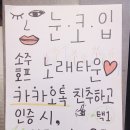 눈.코.입
소주
호프 노래타운
카카오톡 친추하고
인증시,
택1